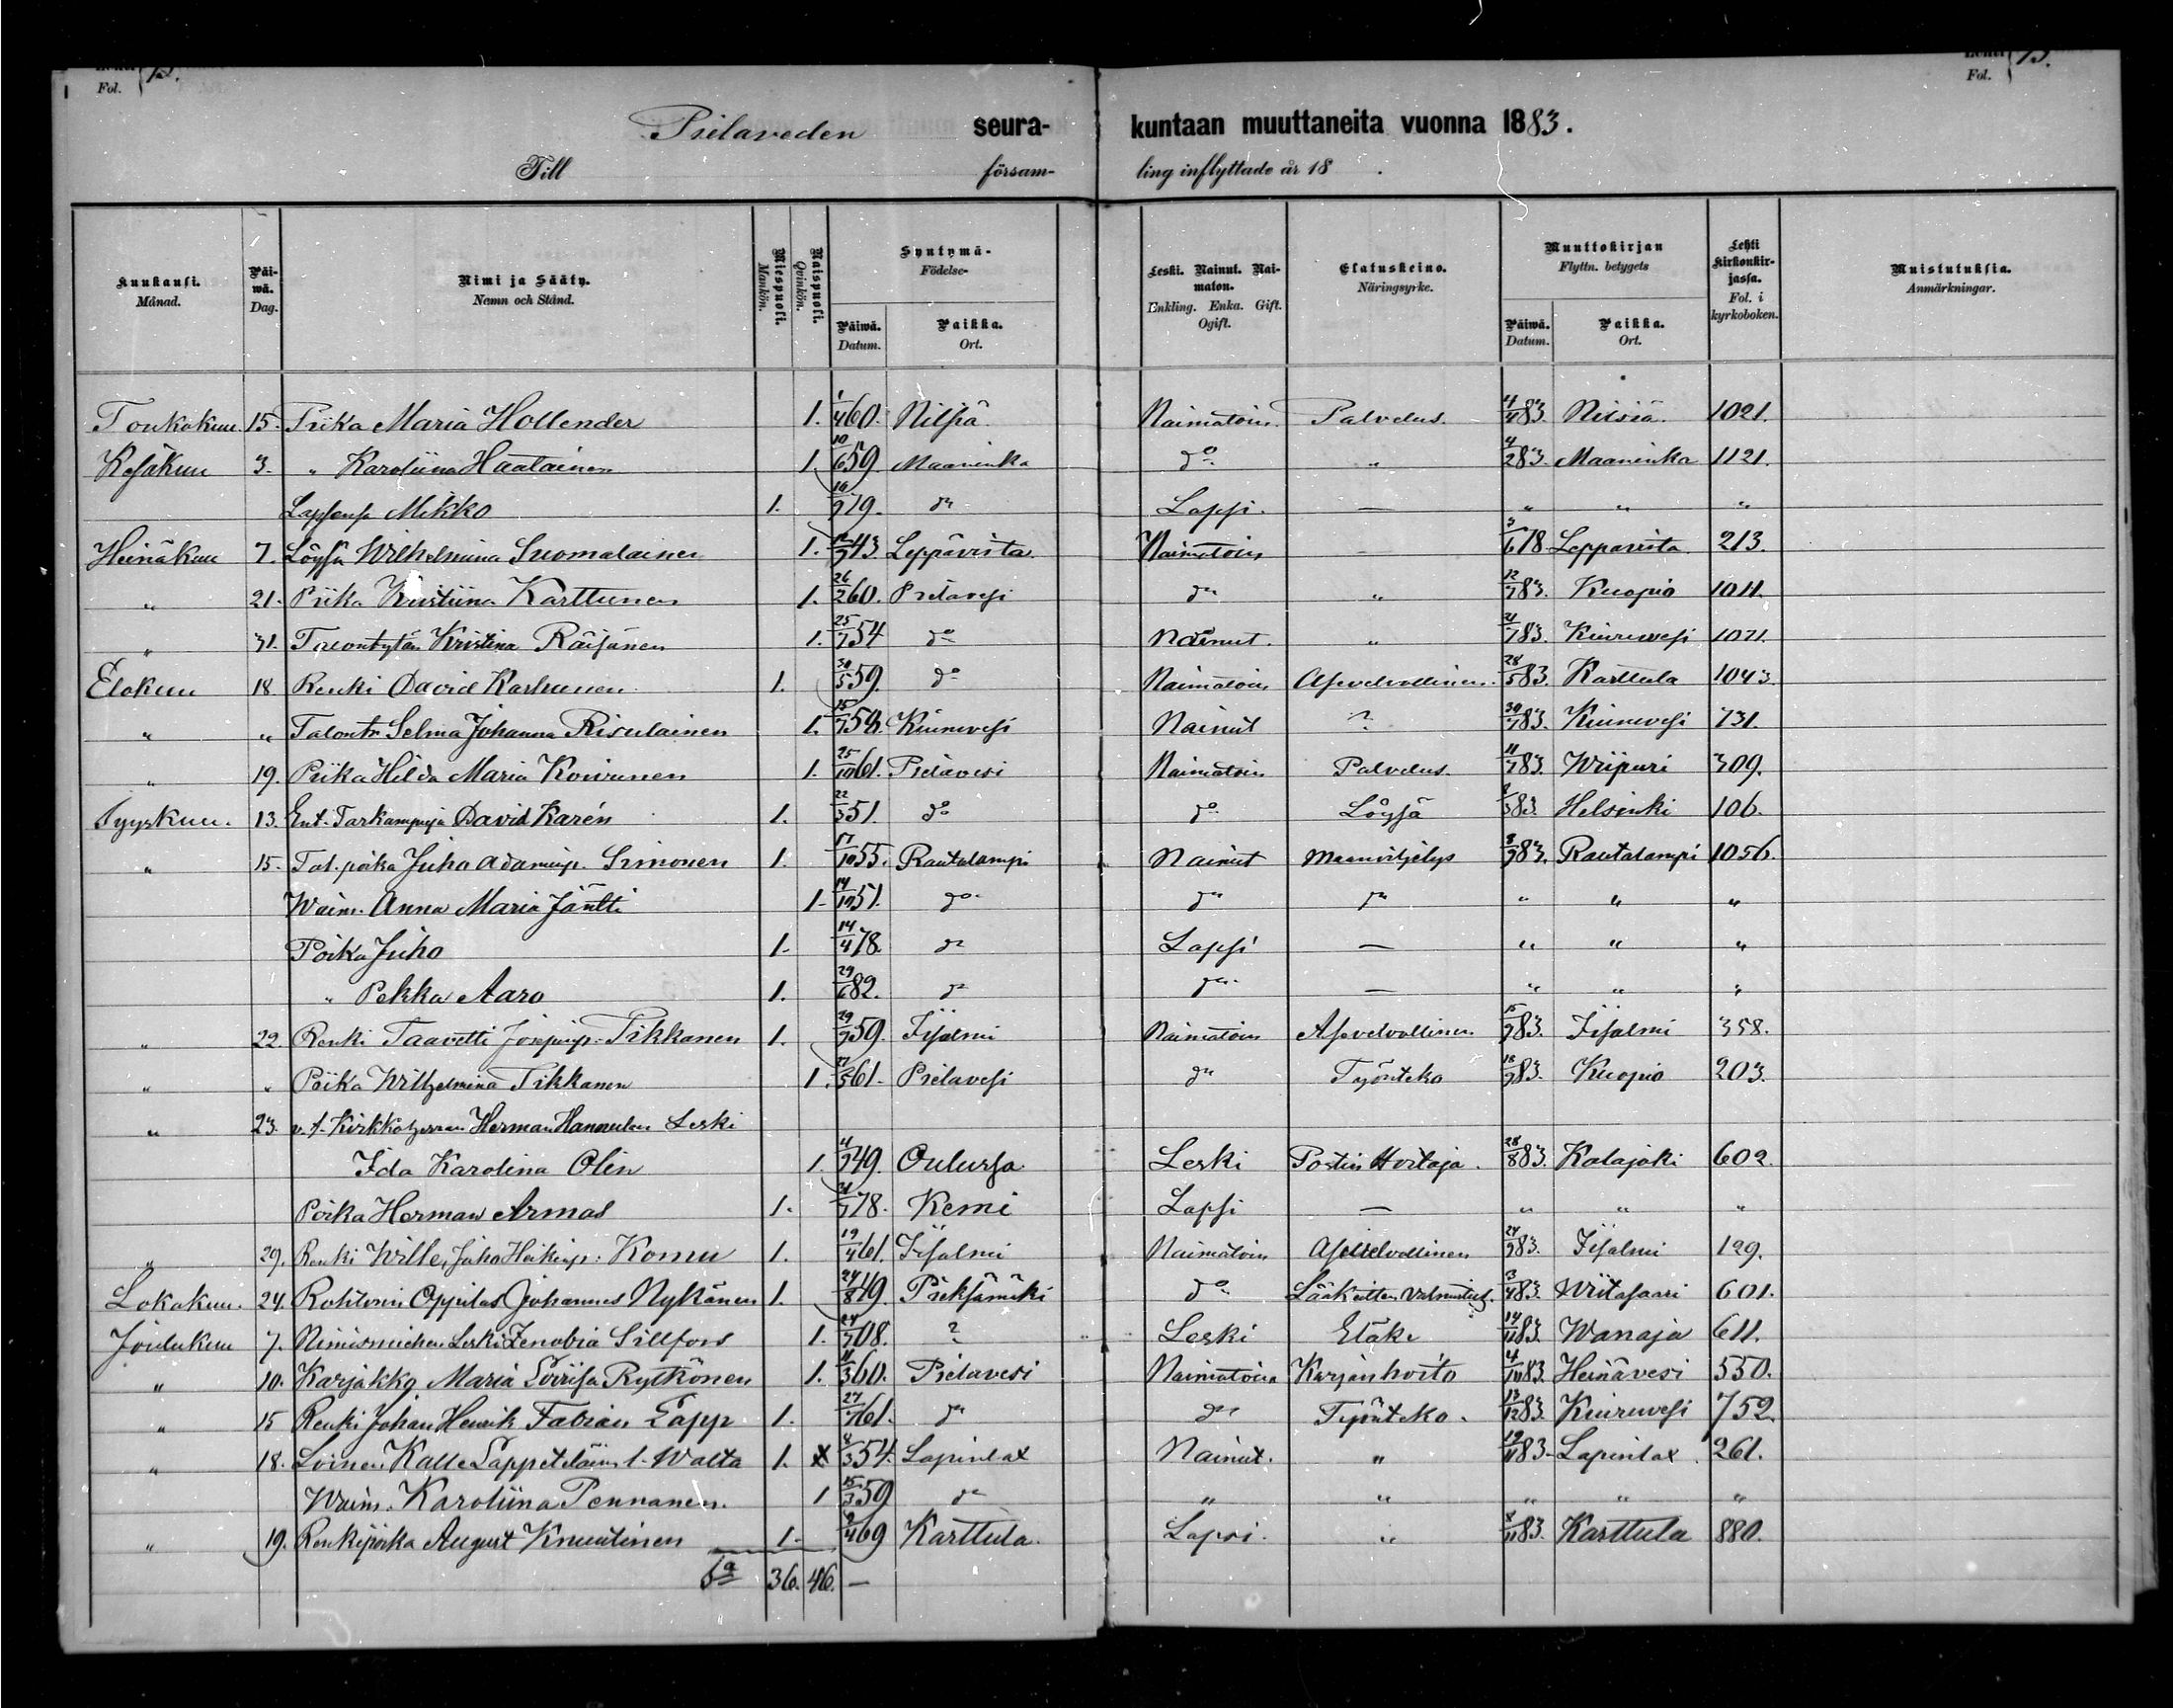 Fol. 13.
Fol. 13.
Pielaveden seura- kuntaan muuttaneita vuonna 1883.
Till försam- ling inflyttade år 18 .
Kuukausi. Månad.
Päiwä. Dag.
Nimi ja Sääty. Namn och Stånd.
Miespuoli. Mankön.
Naispuoli. Qvinkön.
Syntymä- Födelse-
Päiwä. Datum.
Paikka. Ort.
Leski. Nainut. Naimaton. Enkling. Enka. Gift. Ogift.
Elatuskeino. Näringsyrke.
Muuttokirjan Flyttn. betygets
Päiwä. Datum.
Paikka. Ort.
Lehti Kirkonkirjassa. Fol. i kyrkoboken.
Muistutuksia. Anmärkningar.
Toukokuu. 15. Piika Maria Hollender 1. 1/4 60. Nilsiä Naimatoin Palvelus. 4/4 83. Nilsiä 1021.
Kesäkuu 3. " Karoliina Haatainen 1. 10/6 59 Maaninka do " 4/2 83. Maaninka 1121.
Lapsensa Mikko 1. 16/9 79. do Lapsi. — " " "
Heinäkuu 7. Löysä Wilhelmina Suomalainen 1. 12/9 43. Leppävirta Naimatoin — 3/6 78. Leppävirta 213.
" 21. Piika Kristiina Karttunen 1. 26/2 60. Pielavesi do " 12/7 83. Kuopio 1011.
" 31. Talontytär Kristina Räisänen 1. 25/7 54 do Nainut. " 21/7 83. Kiuruvesi 1071.
Elokuu 18 Renki David Karhunen 1. 30/5 59. do Naimatoin Asevelvollinen 28/5 83. Karttula 1043
" " Talontr Selma Johanna Risulainen 1. 15/7 58. Kiuruvesi Nainut ? 30/7 83. Kiuruvesi 731.
" 19. Piika Hilda Maria Koivunen 1. 25/10 61. Pielavesi Naimatoin Palvelus. 11/7 83. Wiipuri 309.
Syyskuu. 13. Ent. Tarkampuja David Karén 1. 22/3 51. do do Löysä 8/3 83. Helsinki 106.
" 15. Tal. poika Juho Adaminp. Simonen 1. 17/10 55. Rautalampi Nainut Maanviljelys 3/9 83. Rautalampi 1056.
Waim. Anna Maria Jäntti 1. 14/10 51. do do do " " "
Poika Juho 1. 14/4 78. do Lapsi — " " "
" Pekka Aaro 1. 29/6 82. do do — " " "
" 22. Renki Taavetti Josepinp. Tikkanen 1. 29/9 59. Iisalmi Naimatoin Asevelvollinen 15/9 83. Iisalmi 358.
" " Piika Wilhelmina Tikkanen 1. 27/5 61. Pielavesi do Työnteko 18/9 83. Kuopio 203.
" 23. v.t. Kirkkoherran Herman Hannulan Leski
Ida Karolina Olin 1. 4/9 49. Oulussa Leski Postin Hoitaja. 28/8 83. Kalajoki 602.
Poika Herman Armas 1. 31/7 78. Kemi Lapsi — " " "
" 29. Renki Wille, Juho Heikinp. Komu 1. 19/4 61. Iisalmi Naimatoin Asevelvollinen 24/9 83. Iisalmi 129.
Lokakuu. 24. Rohtorin Oppilas Johannes Nykänen 1. 24/8 49. Pieksämäki do Lääkeitten valmistus. 3/4 83. Wiitasaari 601.
Joulukuu 7. Nimismiehen Leski Zenobia Sillfors 1. 24/7 08. ? Leski Eläke 14/11 83. Wanaja 611.
" 10. Karjakko Maria Loviisa Rytkönen 1. 11/3 60. Pielavesi Naimatoin Karjanhoito 4/10 83. Heinävesi 550.
" 15 Renki Johan Henrik Fabian Lapp 1. 27/7 61. do do Työnteko. 13/12 83. Kiuruvesi 752.
" 18. Loinen Kalle Lappeteläin l. Walta 1. 8/3 54. Lapinlax Nainut. " 19/11 83. Lapinlax 261.
Waim. Karoliina Pennanen. 1 15/3 59 do " " " " "
" 19. Renkipoika August Knuutinen 1. 2/4 69 Karttula. Lapsi. " 8/11 83. Karttula 880.
Sa 36. 46. —